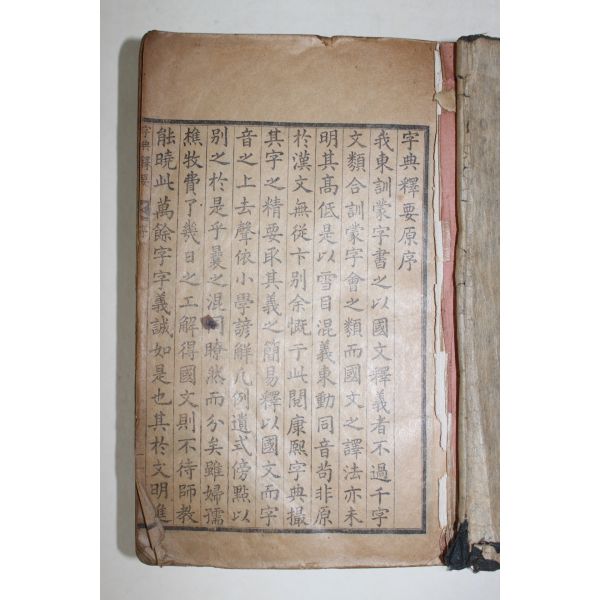 字典釋要原序
我東訓蒙字書之以國文釋義者不過千字
文類合訓蒙字會之類而國文之譯法亦未
明其高低是以雪目混義東動同音苟非原
於漢文無從卞別余慨于此閱康熙字典撮
其字之精要取其義之簡易釋以國文而字
音之上去聲依小學諺解凡例遺式傍點以
別之於是乎曩之混同瞭然而分矣雖婦孺
樵牧費了幾日之工解得國文則不待師教
能曉此萬餘字字義誠如是也其於文明進
字典釋要 序